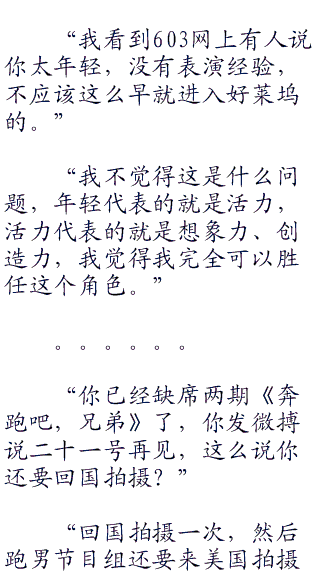 “我看到603网上有人说
你太年轻，没有表演经验，
不应该这么早就进入好菜坞
的。”
“我不觉得这是什么问
题，年轻代表的就是活力，
活力代表的就是想象力、创
造力，我觉得我完全可以胜
任这个角色。”
。。。。。。
“你已经缺席两期《奔
跑吧，兄弟》了，你发微搏
说二十一号再见，这么说你
还要回国拍摄？”
“回国拍摄一次，然后
跑男节目组还要来美国拍摄